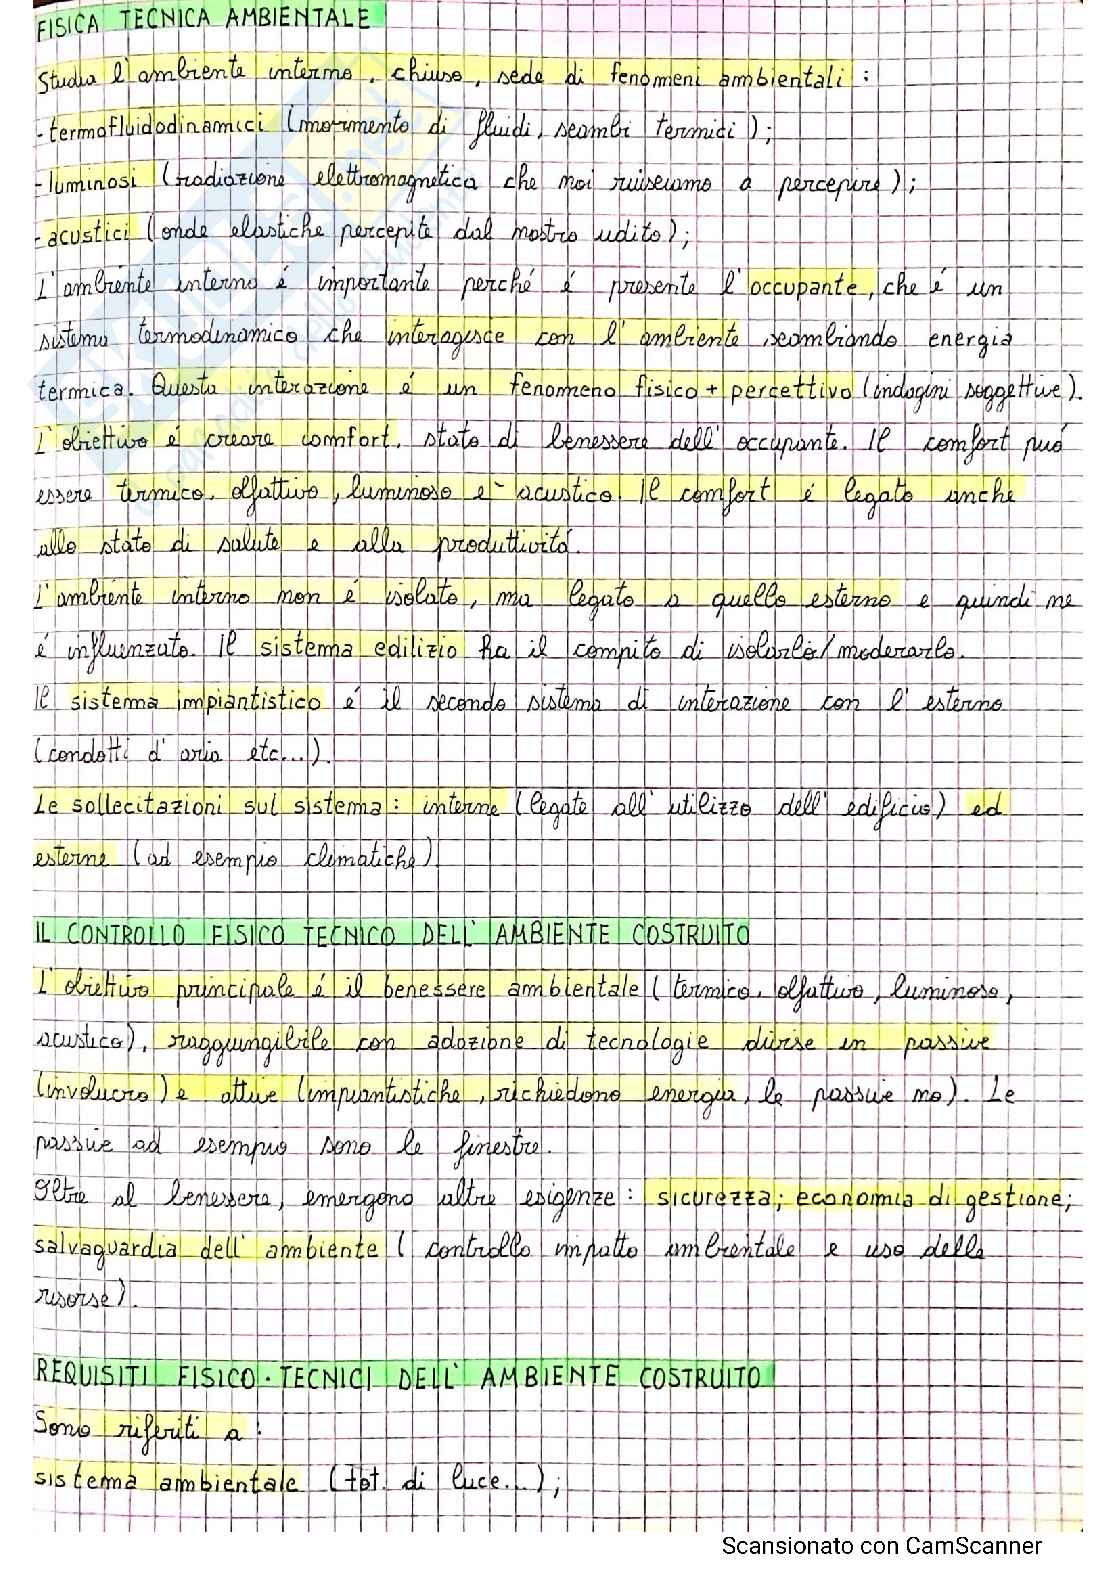 FISICA TECNICA AMBIENTALE
Studia l'ambiente interno, chiuso, sede di fenomeni ambientali :
- termofluidodinamici (movimento di fluidi, scambi termici);
- luminosi (radiazione elettromagnetica che noi riusciamo a percepire);
- acustici (onde elastiche percepite dal nostro udito);
L'ambiente interno é importante perché é presente l'occupante, che é un
sistema termodinamico che interagisce con l'ambiente scambiando energia
termica. Questa interazione é un fenomeno fisico + percettivo (indagini soggettive).
L'obiettivo é creare comfort, stato di benessere dell'occupante. Il comfort puó
essere termico, olfattivo, luminoso e acustico. Il comfort é legato anche
allo stato di salute e alla produttivitá.
L'ambiente interno non é isolato, ma legato a quello esterno e quindi ne
é influenzato. Il sistema edilizio ha il compito di isolarlo/moderarlo.
Il sistema impiantistico é il secondo sistema di interazione con l'esterno
(condotti d'aria etc...).
Le sollecitazioni sul sistema: interne (legate all'utilizzo dell'edificio) ed
esterne (ad esempio climatiche).
IL CONTROLLO FISICO TECNICO DELL'AMBIENTE COSTRUITO
L'obiettivo principale é il benessere ambientale (termico, olfattivo, luminoso,
acustico), raggiungibile con adozione di tecnologie divise in passive
(involucro) e attive (impiantistiche, richiedono energia, le passive no). Le
passive ad esempio sono le finestre.
Oltre al benessere, emergono altre esigenze: sicurezza; economia di gestione;
salvaguardia dell'ambiente (controllo impatto ambientale e uso delle
risorse).
REQUISITI FISICO-TECNICI DELL'AMBIENTE COSTRUITO
Sono riferiti a:
sistema ambientale (tot. di luce...);
Scansionato con CamScanner